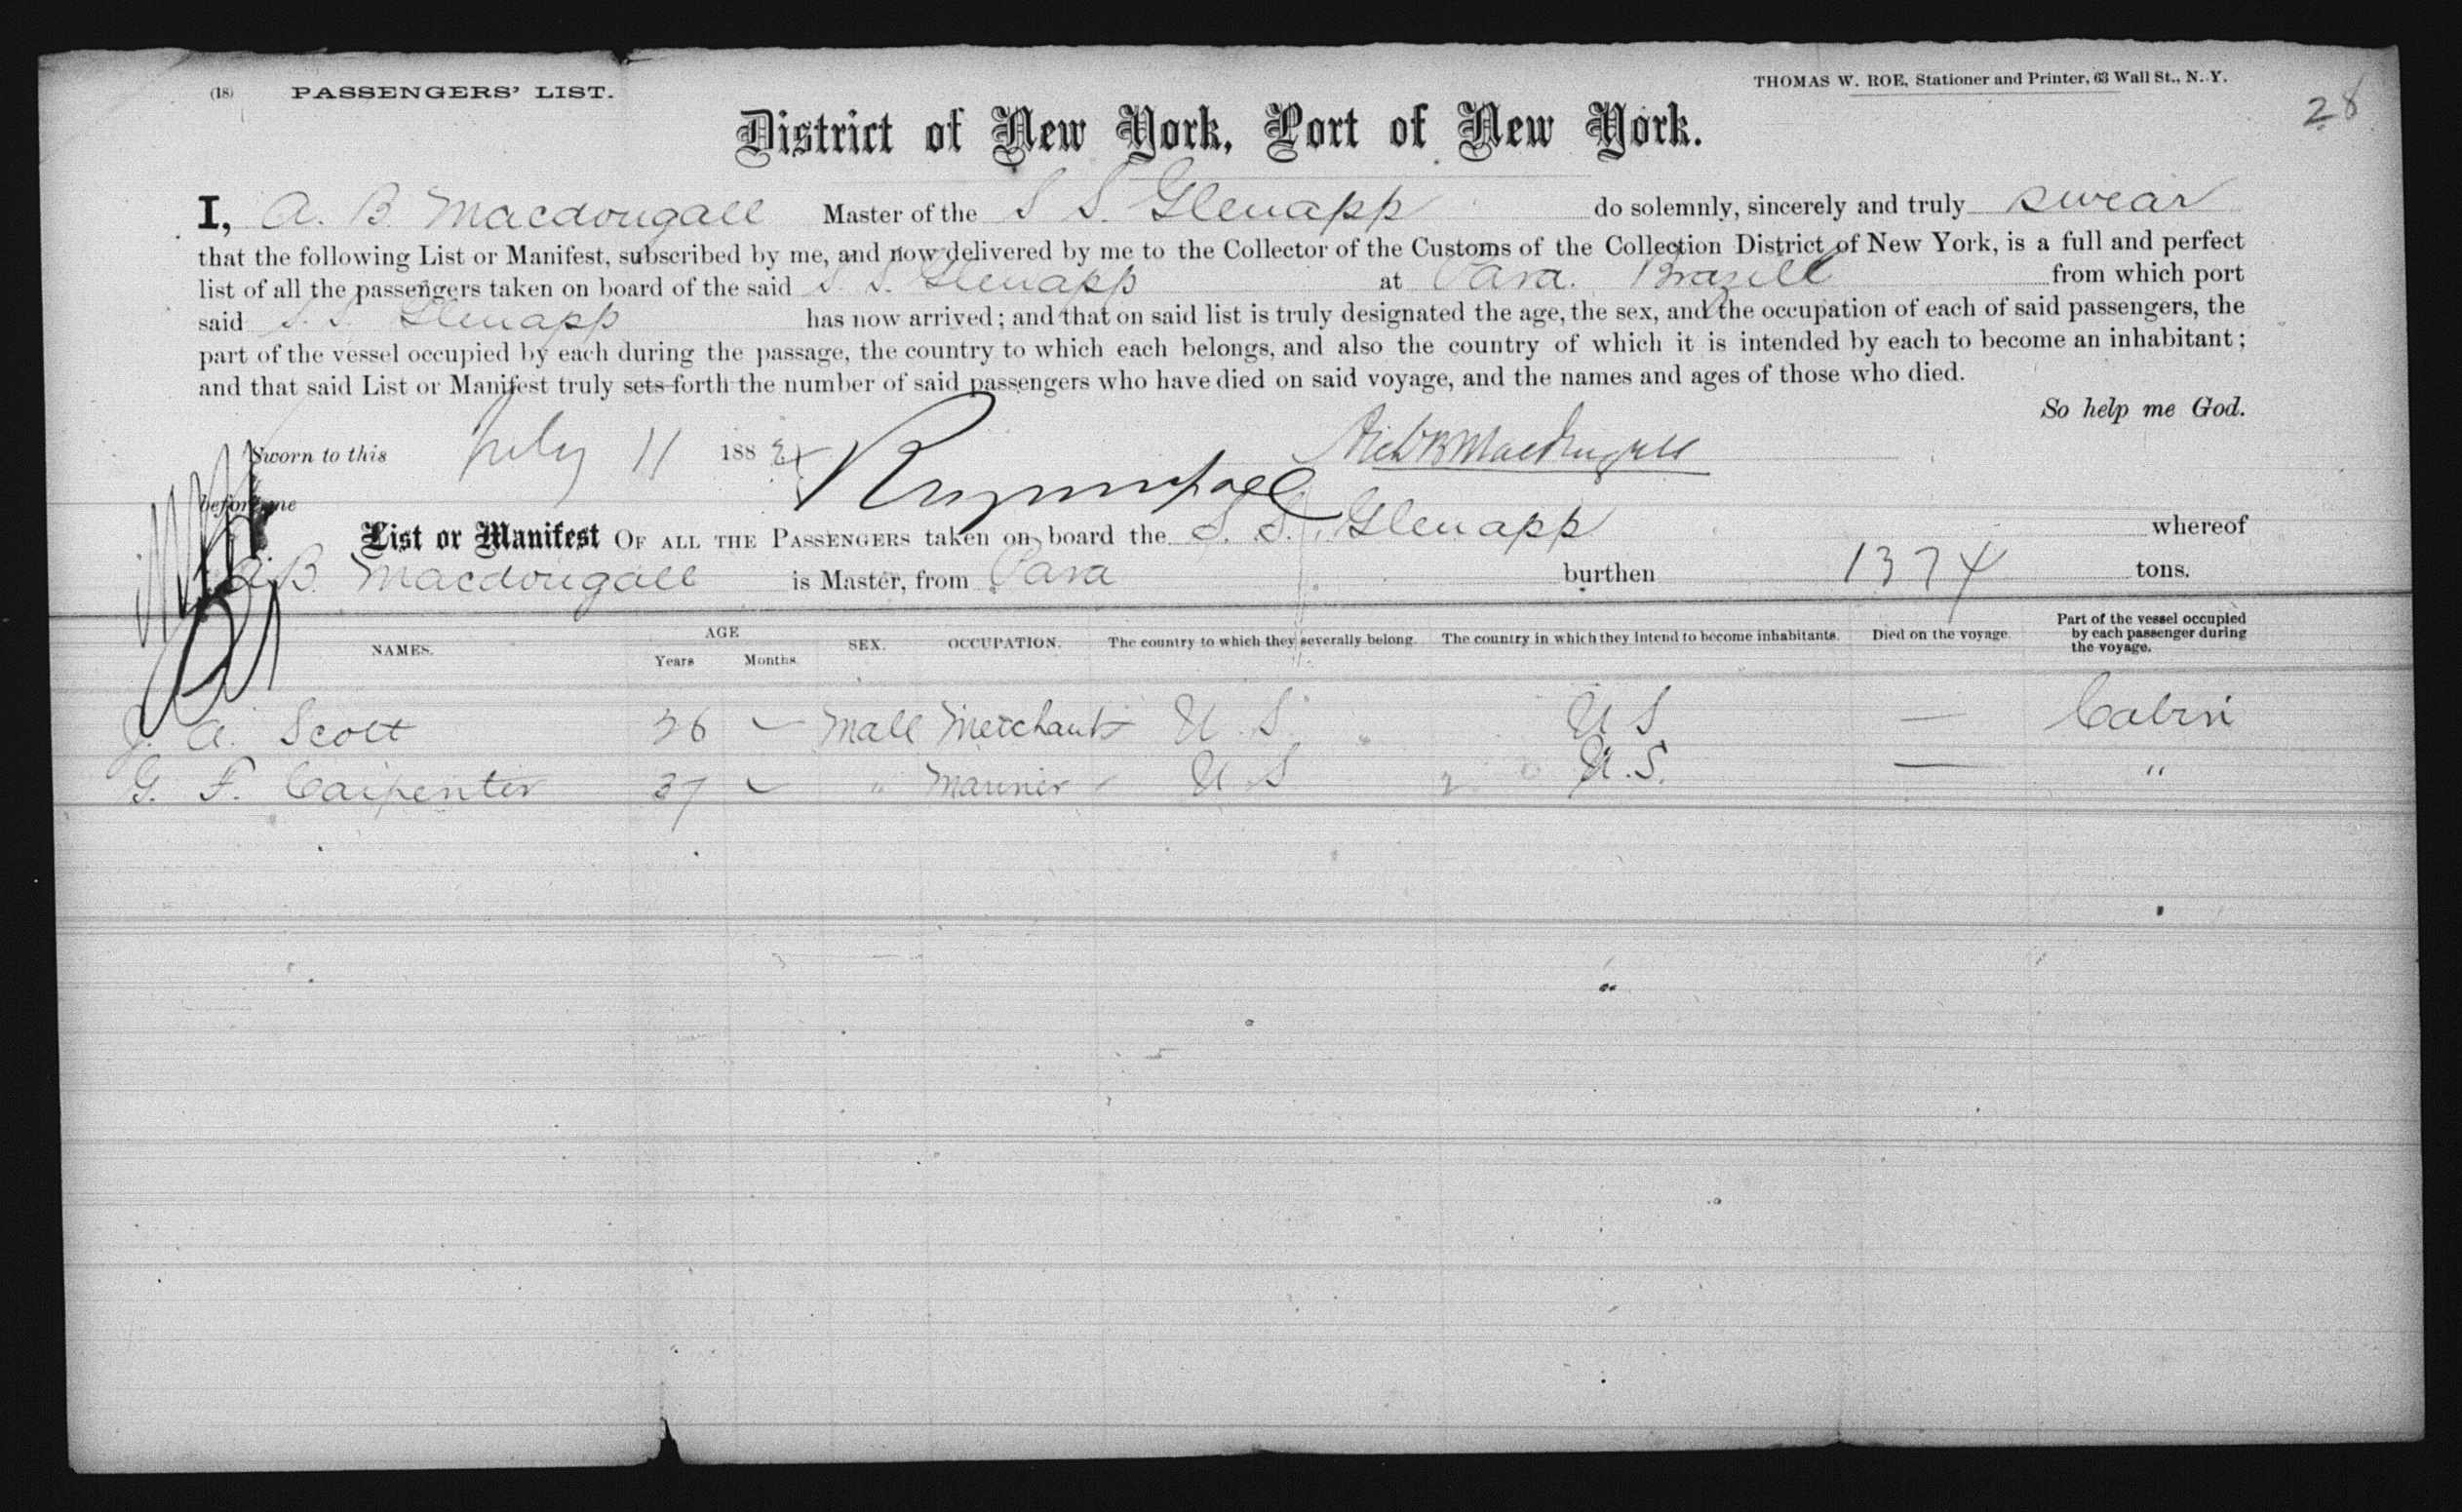 (18) PASSENGERS' LIST.
THOMAS W. ROE, Stationer and Printer, 63 Wall St., N. Y.
28
District of New York, Port of New York.
I, A. B. Macdougall Master of the S S. Glenapp do solemnly, sincerely and truly swear
that the following List or Manifest, subscribed by me, and now delivered by me to the Collector of the Customs of the Collection District of New York, is a full and perfect
list of all the passengers taken on board of the said S. S. Glenapp at Para. Brazill from which port
said S. S. Glenapp has now arrived; and that on said list is truly designated the age, the sex, and the occupation of each of said passengers, the
part of the vessel occupied by each during the passage, the country to which each belongs, and also the country of which it is intended by each to become an inhabitant;
and that said List or Manifest truly sets forth the number of said passengers who have died on said voyage, and the names and ages of those who died.
So help me God.
Sworn to this July 11 188
before me
List or Manifest OF ALL THE PASSENGERS taken on board the S. S. Glenapp whereof
A. B. Macdougall is Master, from Para burthen 1374 tons.
NAMES. AGE Years Months. SEX. OCCUPATION. The country to which they severally belong. The country in which they intend to become inhabitants. Died on the voyage. Part of the vessel occupied by each passenger during the voyage.
J. A. Scott 26 Male Merchant U. S. U S — Cabin
G. F. Carpenter 37 " Mariner U S U.S. — "